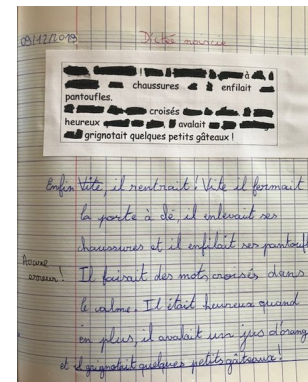 09/12/2019 Dictée
à
chaussures enfilait
pantoufles.
croisés
heureux avalait
grignotait quelques petits gâteaux !
Enfin Vite, il rentrait ! Vite il fermait
la porte à clé, il enlevait ses
chaussures et il enfilait ses pantouf
Aucune
erreur !
Il faisait des mots croisés dans
le calme. Il était heureux quand
en plus, il avalait un jus d'orang
et il grignotait quelques petits gâteaux !